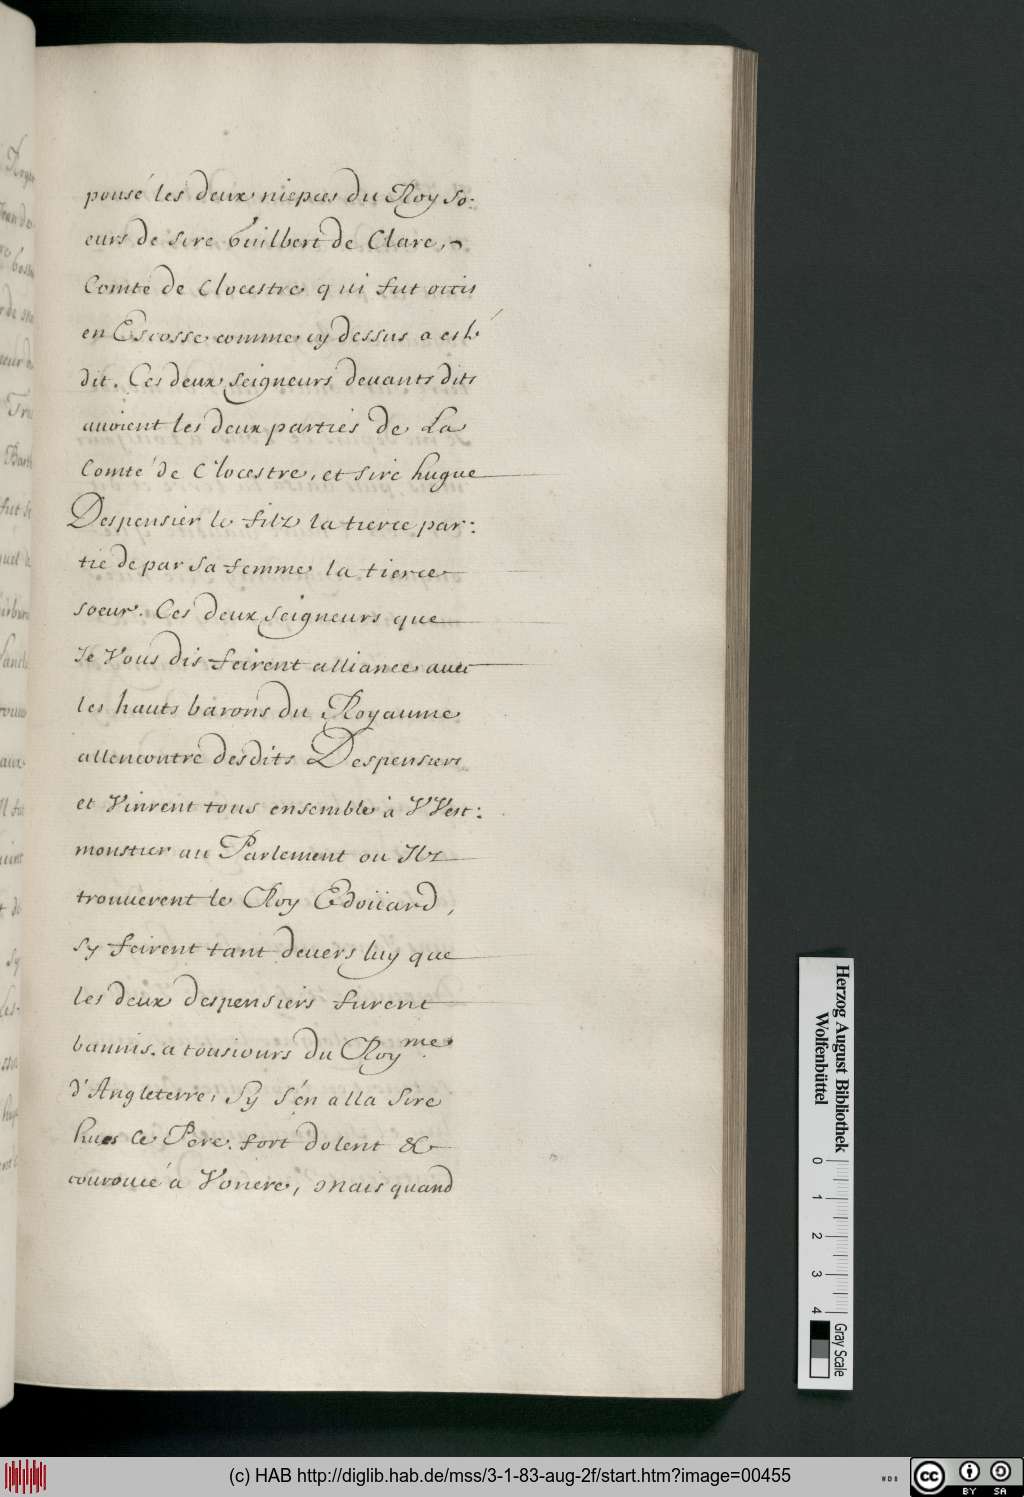 pousé les deux niepces du Roy so:
eurs de sire Guilbert de Clare,
Comte de Clocestre qui fut occis
en Escosse comme cy dessus a esté
dit. Ces deux seigneurs deuants dits
auoient les deux parties de La
Comté de Clocestre, et sire hugue
Despensier le filz la tierce par:
tie de par sa femme la tierce
soeur. Ces deux seigneurs que
Je Vous dis feirent alliance auec
les hauts barons du Royaume
allencontre desdits Despensiers
et Vinrent tous ensemble à VVest:
monstier au Parlement ou Ilz
trouuerent le Roy Edoüard,
sy feirent tant deuers luy que
les deux despensiers furent
bannis a tousiours du Roy me
d'Angleterre, Sy s'en alla Sire
hues le Pere fort dolent &
courouce à Vonere, Mais quand
Herzog August Bibliothek
Wolfenbüttel
0 1 2 3 4
Gray Scale
(c) HAB http://diglib.hab.de/mss/3-1-83-aug-2f/start.htm?image=00455
WDB
CC BY SA